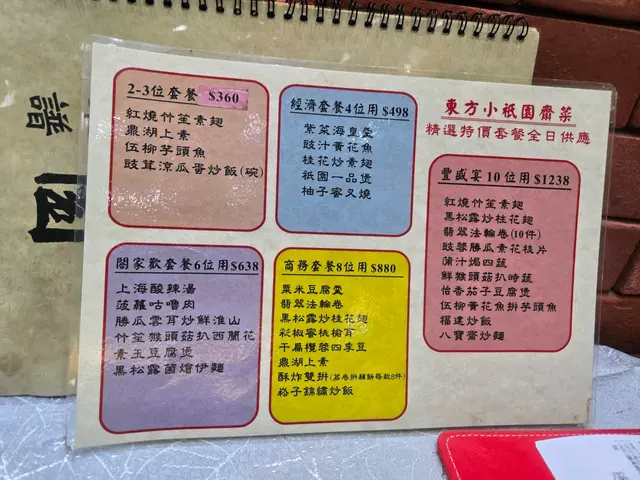 2-3位套餐 $360
紅燒竹笙素翅
鼎湖上素
伍柳芋頭魚
豉茸涼瓜蛋炒飯(碗)
經濟套餐4位用 $498
紫菜海皇羹
豉汁黃花魚
桂花炒素翅
祇園一品煲
柚子蜜叉燒
東方小祇園齋菜
精選特價套餐全日供應
豐盛宴10位用 $1238
紅燒竹笙素翅
黑松露炒桂花翅
翡翠法輪卷(10件)
豉蓉勝瓜素花枝片
蒲汁焗四蔬
鮮猴頭菇扒時蔬
怡香茄子豆腐煲
伍柳黃花魚拼芋頭魚
福建炒飯
八寶齋炒麵
閤家歡套餐6位用 $638
上海酸辣湯
菠蘿咕嚕肉
勝瓜雲耳炒鮮淮山
竹笙猴頭菇扒西蘭花
素玉豆腐煲
黑松露菌燴伊麵
商務套餐8位用 $880
粟米豆腐羹
翡翠法輪卷
黑松露炒桂花翅
彩椒蜜桃榆耳
干扁欖蓉四季豆
鼎湖上素
酥炸雙拼
松子錦繡炒飯